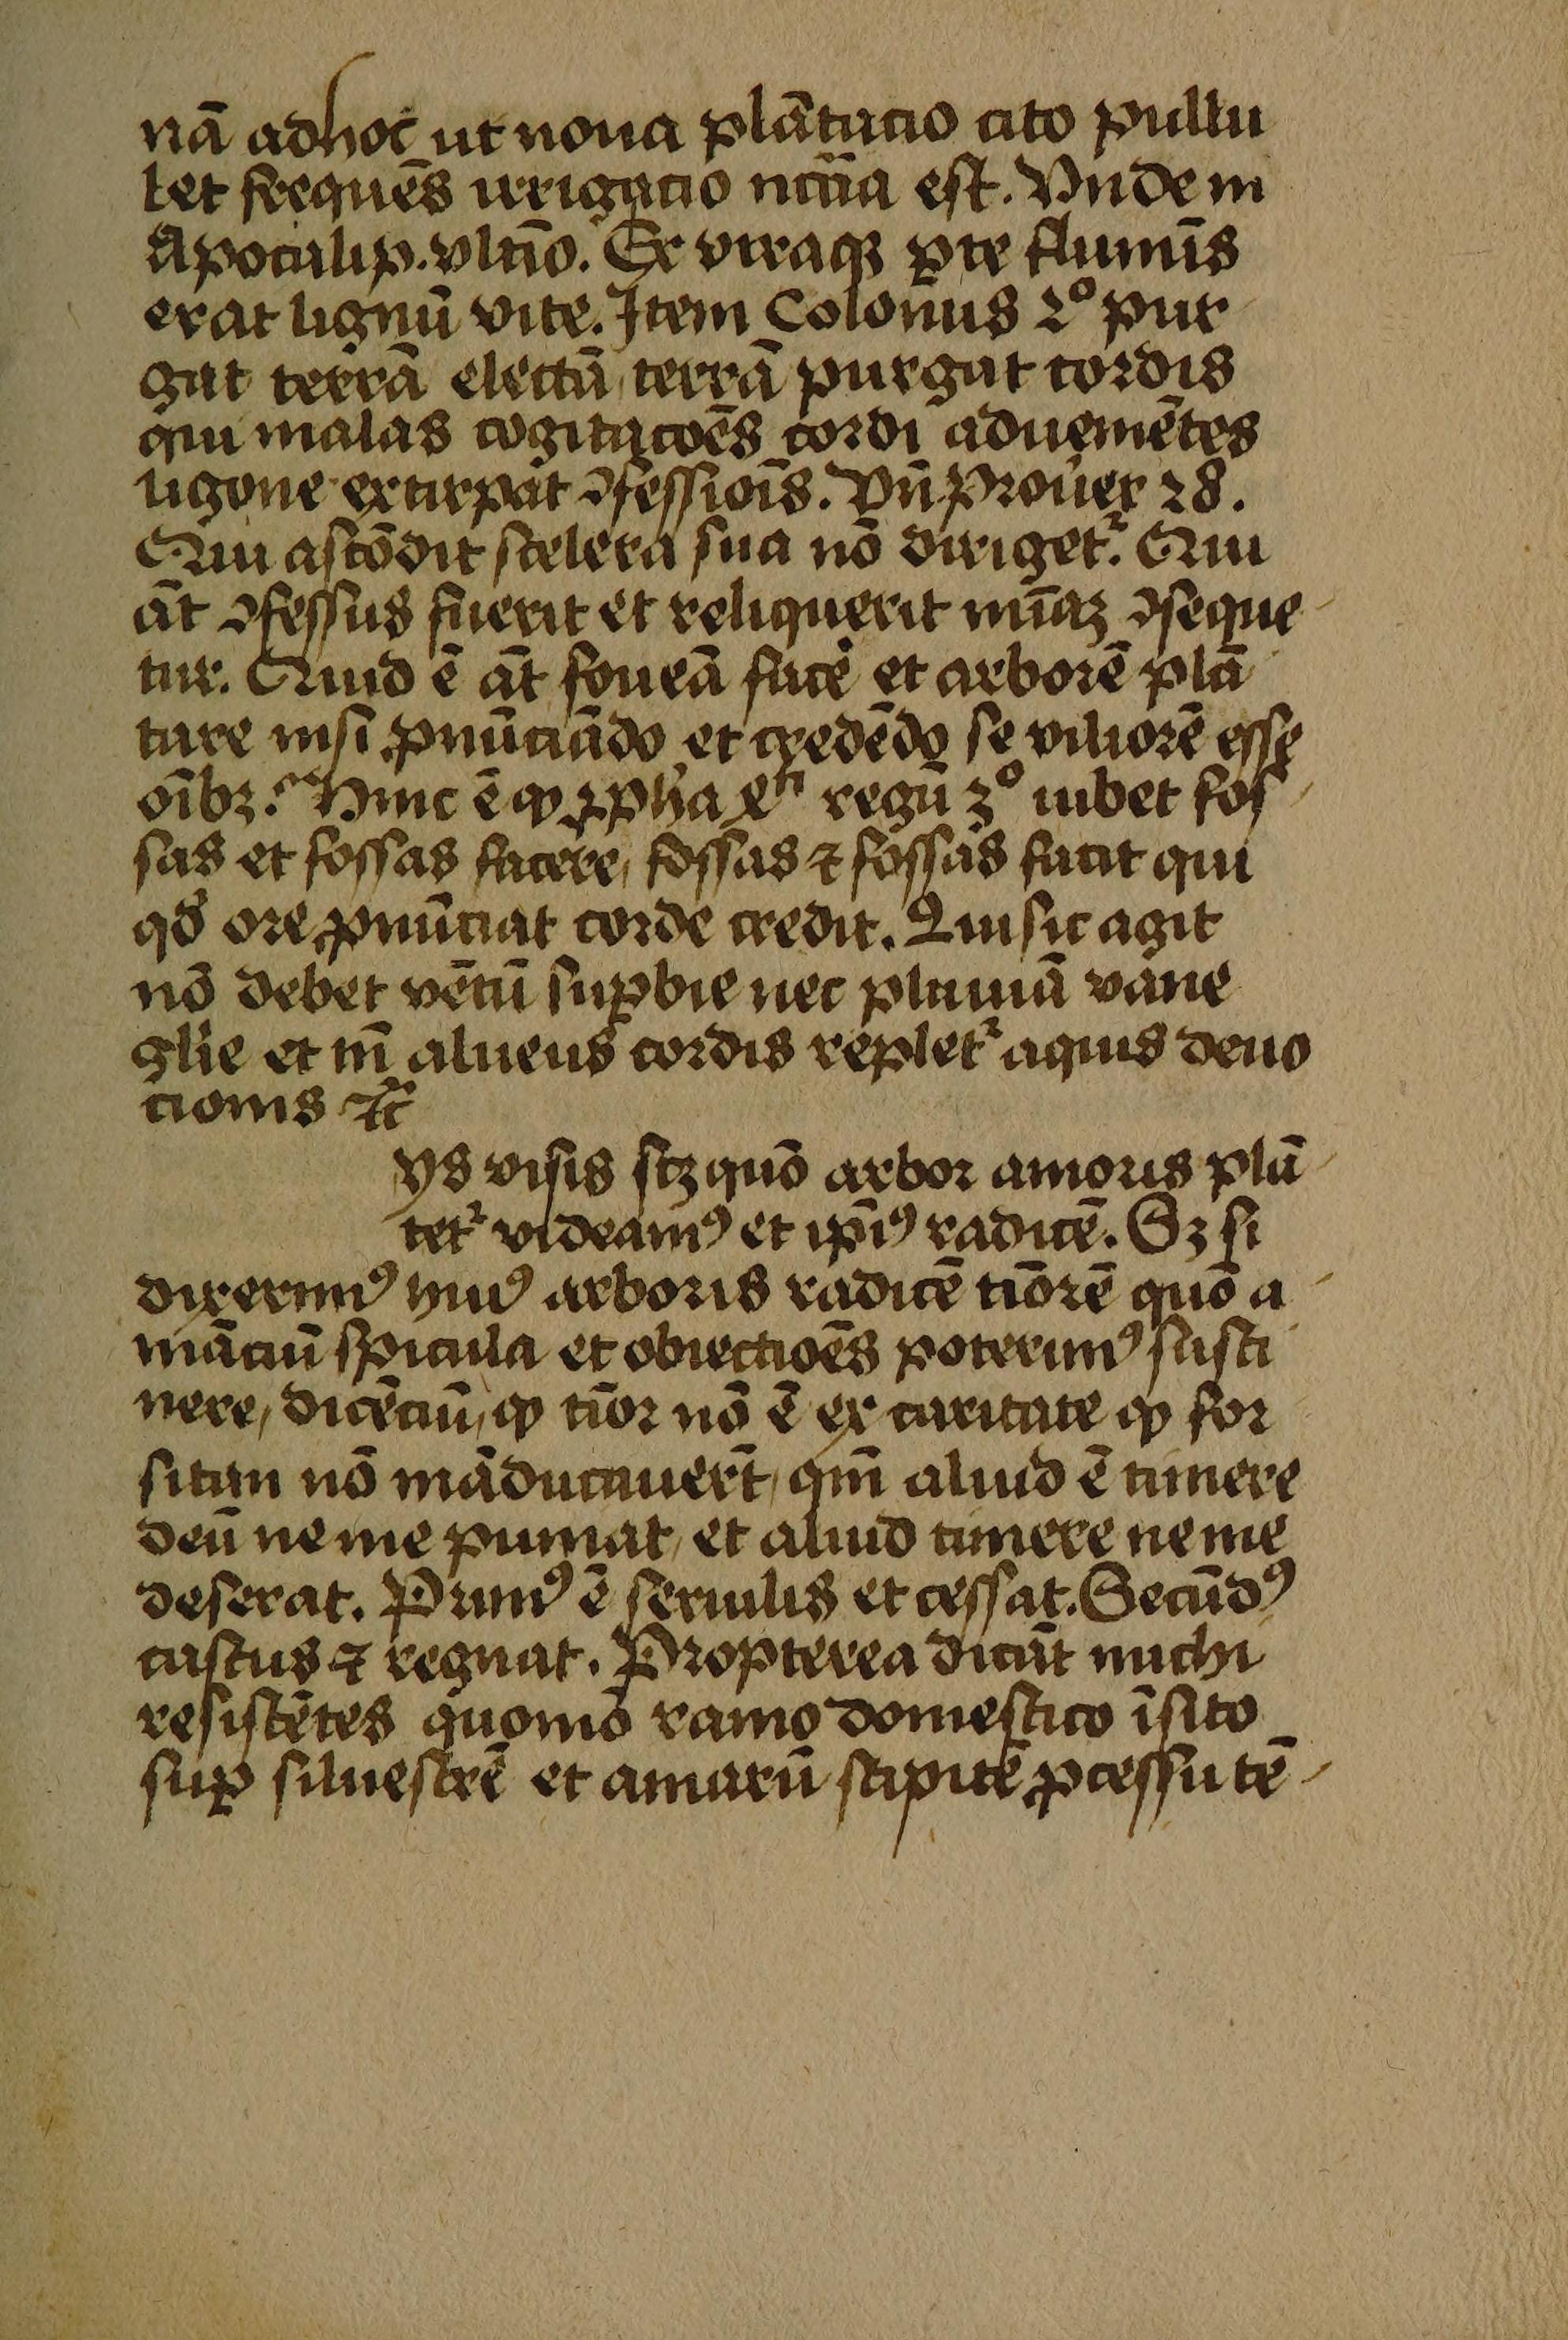 nā adhoc ut noua plātacio cito pullu
let frequēs irrigacio nc̄c̄ia est. Vnde in
Apocalip. vltīo. Ex vtraqꝫ ꝑte flumīs
erat lignū vite. Item Colonus 2º pur
gat terrā electā, terrā purgat cordis
qui malas cogitacōēs cordi adueniētes
ligone extirpat ꝯfessiōīs. Vn̄ Prouer 28.
Qui ascōdit scelera sua nō dirigetᷣ. Qui
āt ꝯfessus fuerit et reliquerit mīaꝫ ꝯseque
tur. Quid ē āt foueā facē et arborē plā
tare nisi ꝓnūciādo et credēdo se viliorē esse
oībꝫ. Hinc ē ꝙ ꝓpha regū 3º iubet fos
sas et fossas facere, fossas ⁊ fossas facit qui
qd̄ ore ꝓnūciat corde credit. Qui sic agit
nō debet vētū suꝑbie nec pluuiā vane
gl̄ie et tn̄ alueus cordis repletᷣ aquis deuo
cionis ⁊c̄
ys visis scꝫ quō arbor amoris plā
tetᷣ videamꝰ et ip̄iꝰ radicē. Sꝫ si
dixerimꝰ huiꝰ arboris radicē tīorē quō a
māciū spicula et obiectiōēs poterimꝰ susti
nere, dicēciū, ꝙ tīor nō ē ex caritate ꝙ for
sitan nō māducauert̄, qm̄ aliud ē timere
deū ne me puniat, et aliud timere ne me
deserat. Primꝰ ē seruilis et cessat. Secūdꝰ
castus ⁊ regnat. Propterea dicūt michi
resistētes quomō ramo domestico īsito
suꝑ siluestrē et amarū stipitē ꝓcessu tē